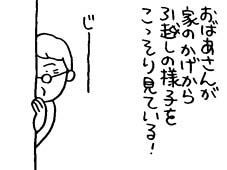 おばあさんが
家のかげから
引越しの様子を
こっそり見ている!
じーーー